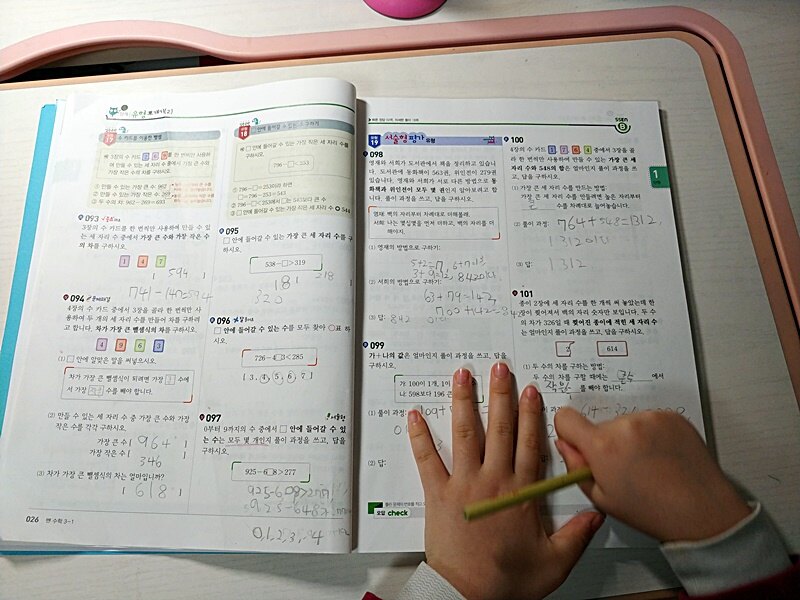 유형
17 수 카드를 이용한 뺄셈
3장의 수 카드
를 한 번씩만 사용하여 만들 수 있는 세 자리 수 중에서 가장 큰 수와 가장 작은 수의 차를 구하시오.
① 만들 수 있는 가장 큰 수: 962
② 만들 수 있는 가장 작은 수: 269
③ 두 수의 차: 962-269=693
093
3장의 수 카드를 한 번씩만 사용하여 만들 수 있
는 세 자리 수 중에서 가장 큰 수와 가장 작은 수
의 차를 구하시오.
1 4 7
594
741-147=594
094
4장의 수 카드 중에서 3장을 골라 한 번씩만 사
용하여 두 개의 세 자리 수를 만들어 차를 구하려
고 합니다. 차가 가장 큰 뺄셈식의 차를 구하시오.
4 9 6 3
(1) □ 안에 알맞은 말을 써넣으시오.
차가 가장 큰 뺄셈식이 되려면 가장 큰 수에
서 가장 작은 수를 빼야 합니다.
(2) 만들 수 있는 세 자리 수 중 가장 큰 수와 가장
작은 수를 각각 구하시오.
가장 큰 수 964
가장 작은 수 346
(3) 차가 가장 큰 뺄셈식의 차는 얼마입니까?
618
026 쎈 수학 3-1
18 □ 안에 들어갈 수 있는 수 구하기
□ 안에 들어갈 수 있는 가장 작은 세 자리 수를
구하시오.
796-□<253
① 796-□=253이라 하면
796-253=543
095
□ 안에 들어갈 수 있는 가장 큰 세 자리 수를 구
하시오.
538-□>319
218
181
320
096
□ 안에 들어갈 수 있는 수를 모두 찾아 ○표 하
시오.
726-4□3<285
(3, 4, 5, 6, 7)
097
0부터 9까지의 수 중에서 □ 안에 들어갈 수 있
는 수는 모두 몇 개인지 풀이 과정을 쓰고, 답을
구하시오.
925-6□8>277
925-608>277
925-648>277
0,1,2,3,4
SSEN
B
유형
19 서술형 평가 유형
098
영재와 서희가 도서관에서 책을 정리하고 있습니
다. 도서관에 동화책이 563권, 위인전이 279권
있습니다. 영재와 서희가 서로 다른 방법으로 동
화책과 위인전이 모두 몇 권인지 알아보려고 합
니다. 풀이 과정을 쓰고, 답을 구하시오.
영재: 백의 자리부터 차례대로 더해볼래.
서희: 나는 몇십몇을 먼저 더하고, 백의 자리를 더
해야지.
(1) 영재의 방법으로 구하기:
5+2=7, 6+7=13
3+9=12, 842이다
(2) 서희의 방법으로 구하기:
63+79=142
700+142=842
(3) 답: 842
099
가+나의 값은 얼마인지 풀이 과정을 쓰고, 답을
구하시오.
가: 100이 1개, 1이
나: 598보다 196 큰
(1) 풀이 과정:
(2) 답:
오답 check
100
4장의 수 카드 5 7 6 4 중에서 3장을 골
라 한 번씩만 사용하여 만들 수 있는 가장 큰 세
자리 수와 548의 합은 얼마인지 풀이 과정을 쓰
고, 답을 구하시오.
(1) 가장 큰 세 자리 수를 만드는 방법:
가장 큰 세 자리 수를 만들려면 높은 자리부터
큰 수를 차례로 늘어놓습니다.
(2) 풀이 과정: 764+548=1312,
1312이다
(3) 답: 1312
1
101
종이 2장에 세 자리 수를 한 개씩 써 놓았는데 한
장이 찢어져서 백의 자리 숫자만 보입니다. 두 수
의 차가 326일 때 찢어진 종이에 적힌 세 자리 수
는 얼마인지 풀이 과정을 쓰고, 답을 구하시오.
614
(1) 두 수의 차를 구하는 방법:
두 수의 차를 구할 때에는 큰수 에서
작은수 를 빼야 합니다.